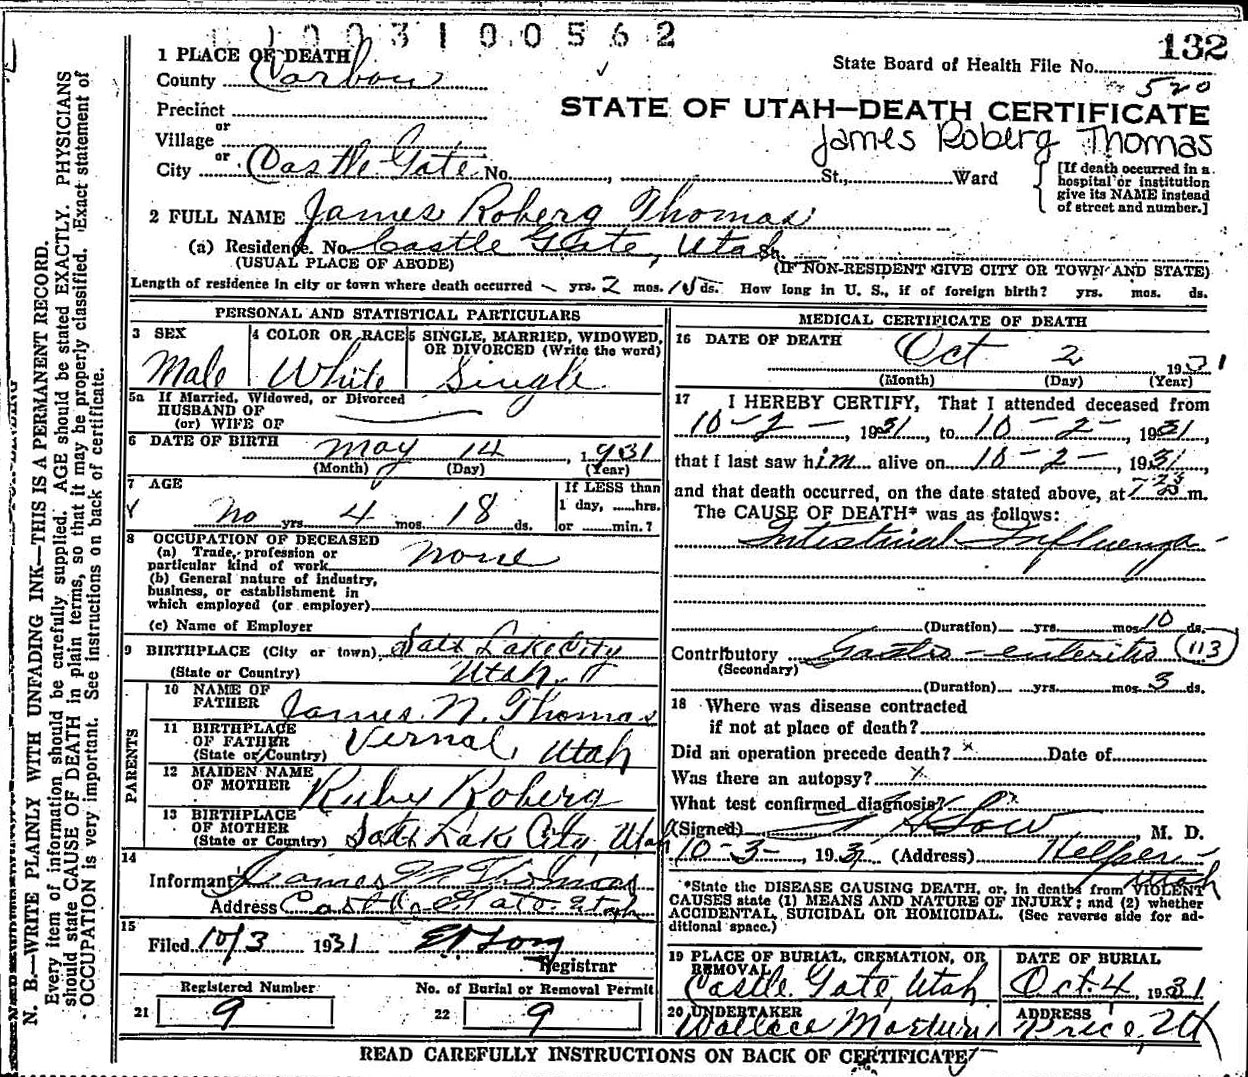 1003100562
132
1 PLACE OF DEATH
State Board of Health File No.
County Carbon
520
Precinct
STATE OF UTAH—DEATH CERTIFICATE
or
Village
James Roberg Thomas
or
City Castle Gate No. , St., Ward
[If death occurred in a hospital or institution give its NAME instead of street and number.]
2 FULL NAME James Roberg Thomas
(a) Residence. No. Castle Gate, Utah St.
(USUAL PLACE OF ABODE) (IF NON-RESIDENT GIVE CITY OR TOWN AND STATE)
Length of residence in city or town where death occurred - yrs. 2 mos. 15 ds. How long in U. S., if of foreign birth? yrs. mos. ds.
PERSONAL AND STATISTICAL PARTICULARS
3 SEX 4 COLOR OR RACE 5 SINGLE, MARRIED, WIDOWED, OR DIVORCED (Write the word)
Male White Single
5a If Married, Widowed, or Divorced
HUSBAND OF
(or) WIFE OF
6 DATE OF BIRTH May 14, 1931
(Month) (Day) (Year)
7 AGE
If LESS than
1 day, ......hrs.
no yrs. 4 mos. 18 ds. or ......min.?
8 OCCUPATION OF DECEASED
(a) Trade, profession or
particular kind of work none
(b) General nature of industry,
business, or establishment in
which employed (or employer)
(c) Name of Employer
9 BIRTHPLACE (City or town) Salt Lake City
(State or Country) Utah
PARENTS
10 NAME OF FATHER James N. Thomas
11 BIRTHPLACE OF FATHER (State or Country) Vernal, Utah
12 MAIDEN NAME OF MOTHER Ruby Roberg
13 BIRTHPLACE OF MOTHER (State or Country) Salt Lake City, Utah
14
Informant James N Thomas
Address Castle Gate Utah
15
Filed 10/3 1931
Registrar
Registered Number No. of Burial or Removal Permit
21 9 22 9
MEDICAL CERTIFICATE OF DEATH
16 DATE OF DEATH Oct 2, 1931
(Month) (Day) (Year)
17 I HEREBY CERTIFY, That I attended deceased from
10-2-, 1931, to 10-2-, 1931,
that I last saw him alive on 10-2-, 1931,
and that death occurred, on the date stated above, at m.
The CAUSE OF DEATH* was as follows:
Intestinal Influenza -
(Duration) yrs. mos. 10 ds.
Contributory Gastro-enteritis 113
(Secondary)
(Duration) yrs. mos. 3 ds.
18 Where was disease contracted
if not at place of death?
Did an operation precede death? x Date of
Was there an autopsy? x
What test confirmed diagnosis? x
(Signed) M. D.
10-3-, 1931 (Address) Helper - Utah
*State the DISEASE CAUSING DEATH, or, in deaths from VIOLENT
CAUSES state (1) MEANS AND NATURE OF INJURY; and (2) whether
ACCIDENTAL, SUICIDAL OR HOMICIDAL. (See reverse side for ad-
ditional space.)
19 PLACE OF BURIAL, CREMATION, OR REMOVAL DATE OF BURIAL
Castle Gate, Utah Oct. 4, 1931
20 UNDERTAKER ADDRESS
Wallace Price, Ut
READ CAREFULLY INSTRUCTIONS ON BACK OF CERTIFICATE
N. B.—WRITE PLAINLY WITH UNFADING INK—THIS IS A PERMANENT RECORD.
Every item of information should be carefully supplied. AGE should be stated EXACTLY. PHYSICIANS
should state CAUSE OF DEATH in plain terms, so that it may be properly classified. Exact statement of
OCCUPATION is very important. See instructions on back of certificate.